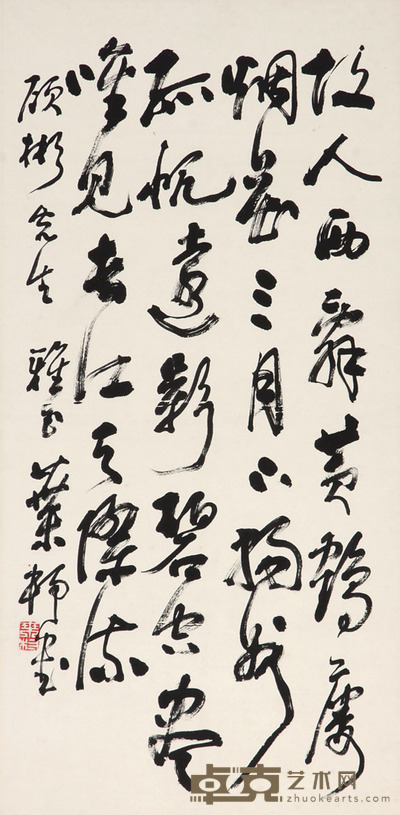 故人西辞黄鹤楼
烟花三月下扬州
孤帆远影碧空尽
唯见长江天际流
顾彬先生 雅正 叶
卓克艺术网
zhuokearts.com